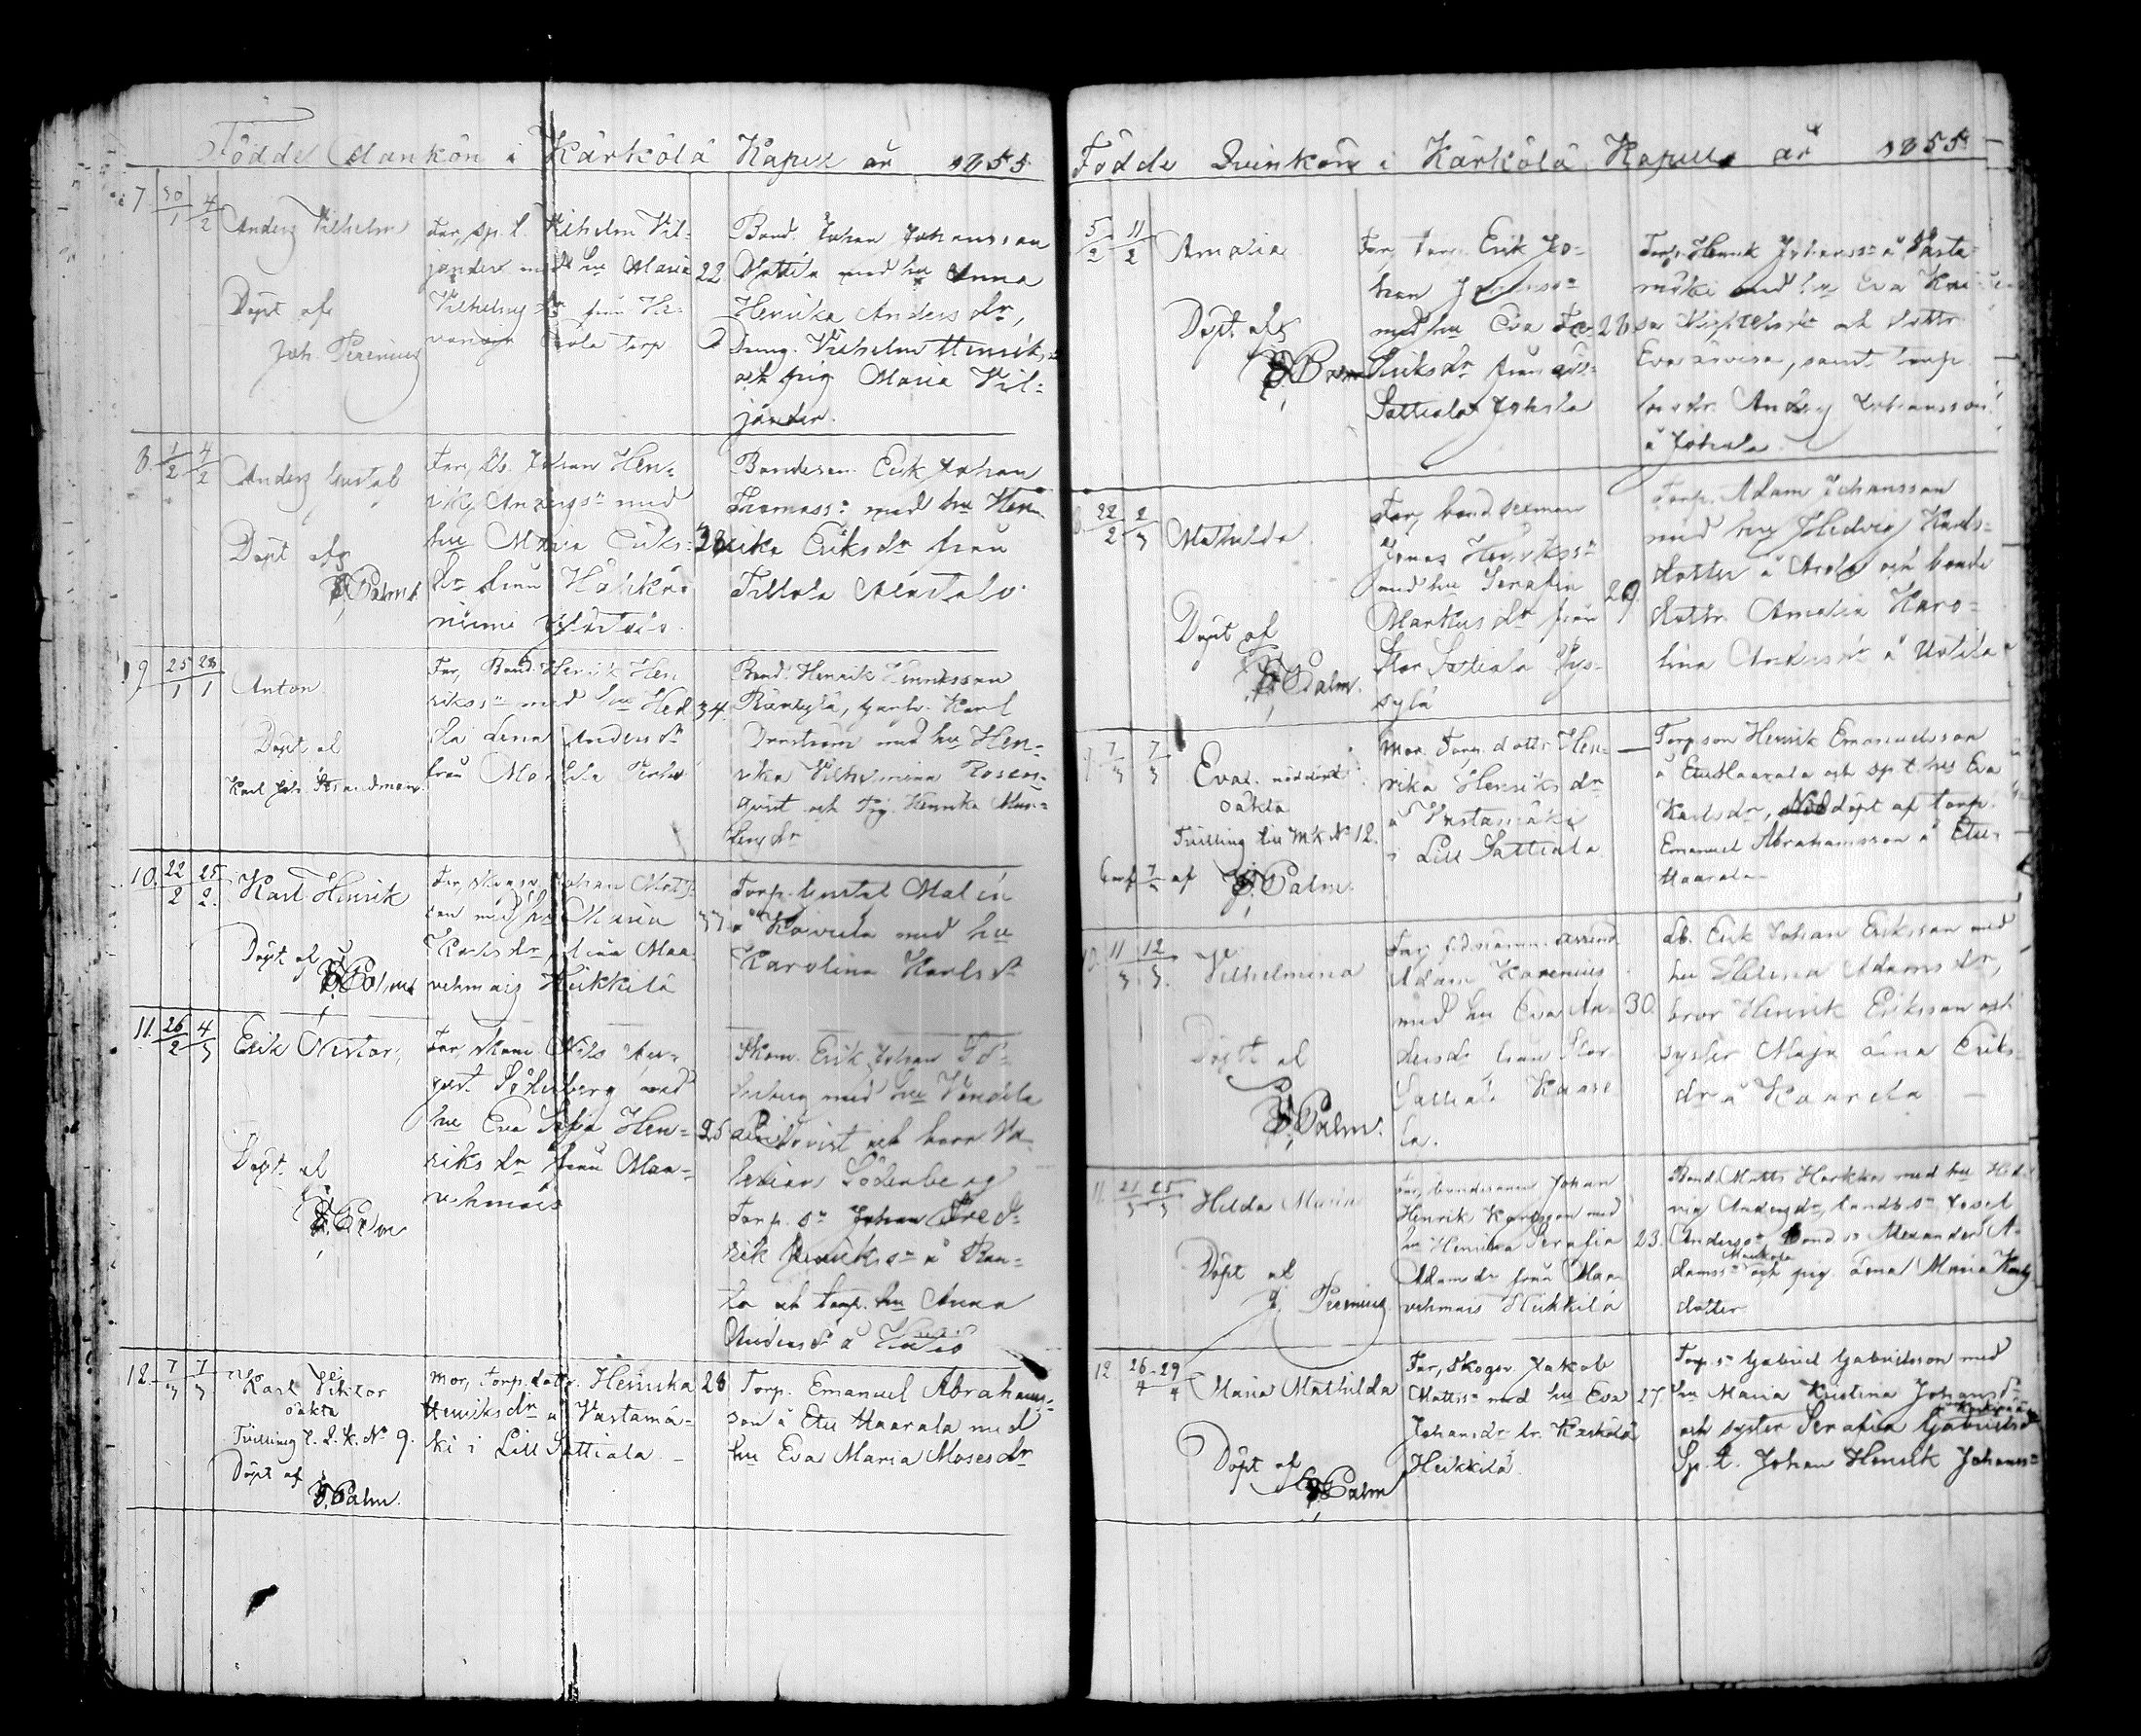 Födde Mankön i Kärkölä Kapell år 1855
7. 30/1 4/2
Anders Vilhelm
Döpt af
Joh. Perenius
Far, sp. t. Vilhelm Vil-
jander med hu Maria 22
Vilhelms dr från
torp
Bond. Johan Johansson
Mattila med hu Anna
Henrika Anders dr,
Dräng. Vilhelm Henriks
och pig. Maria Vil-
jander.
8. 1/2 4/2
Anders Gustaf
Döpt af
Palm
Far, Lb. Johan Hen-
rik Andersn med
hu Maria Eriks- 28
dr från Hähkä-
niemi
Bondeson Erik Johan
Thomassn med hu Hen-
rika Eriks dr från
Tillola Alastalo.
9. 25/1 28/1
Anton
Döpt af
Karl Joh. Strandman
Far, Bond. Henrik Hen
rikssn med hu Hed 34.
da Lena Anders dr
från
Bond. Henrik Henriksson
Karl
med hu Hen-
rika Vilhelmina Rosen-
qvist och Pig. Henrika
dr
10. 22/2 25/2
Karl Henrik
Döpt af
Palm
Far, Skogv. Johan Matts-
son med hu Maria 37
Karls dr, från Maa
vehmais Heikkilä
Torp. Gustaf Malin
å med hu
Karolina Karls dr
11. 26/2 4/3
Erik Nestor,
Döpt af
Palm
Far, Skom. Nils Au-
gust. Söderberg med
hu Eva Sofia Hen- 25
riks dr från Maa-
vehmais
Skom. Erik Johan Sö-
derberg med hu Vendela
och
Söderberg
Torp. sn Johan Fred-
rik Henrikssn å
och torp. hu Anna
Anders dr å
12. 7/3 7/3
Karl Viktor
oäkta
Tvilling t. Q. K. No 9.
Döpt af
Palm.
Mor, torp. dottr. Henrika 28
Henriks dr å Vastamä-
ki i Lill Sattiala -
Torp. Emanuel Abrahams-
son å Etu Maarala med
hu Eva Maria Moses dr
Födde Qvinkön i Kärkölä Kapell år 1855
5/2 11/2
Amalia
Döpt af
Palm
Far, torp. Erik Jo-
han Johanssn
med hu Eva 28
Eriks dr från
Sattiala Johela
Torp. Henrik Johanssn å Vasta-
mäki med hu Eva
och dottr
Eva Lovisa, samt torp.
Anders Johansson
å Johela.
8. 28/2 2/3
Mathilda
Döpt af
Palm.
Far, bondeson
Jonas Henrikssn
med hu Serafia 29.
Markus dr från
Stor Sattiala
sylä
Torp. Adam Johansson
med hu Hedvig Karls-
dotter å Arola och bonde
dottr. Amalia Karo-
lina Anders dr å Uotila
9. 7/3 7/3
Eva. nöddöpt
oäkta
Tvilling till M.K. No 12.
Conf. 7/3 af Palm.
Mor. Torp. dottr. Hen-
rika Henriks dr
å Vastamäki
i Lill Sattiala
Torp. son Henrik Emanuelsson
å Etu Maarala och sp. t. hu Eva
Karls dr, Nöddöpt af torp.
Emanuel Abrahamsson å Etu-
Maarala
10. 11/3 12/3
Vilhelmina
Döpt af
Palm.
Far, f.d. nämnd. arrend.
Adam Karenius
med hu Eva An- 30.
ders dr från Stor
Sattiala Kaare
la.
Lb. Erik Johan Eriksson med
hu Helena Adams dr,
bror Henrik Eriksson och
syster Maja Lena Eriks-
dr å Kaarela
11. 21/3 25/3
Hilda Maria
Döpt af
J. Perenius
Far, bondesonen Johan
Henrik Karlsson med
hu Henrika Serafia 23.
Adams dr från Maa
vehmais Heikkilä
Bond. Matts Harkka med hu Hed-
vig Anders dr, Josef
Anderssn, Bond sn Alexander A-
damssn och pig. Lena Maria Karls
dotter
12 26/4 29/4
Maria Mathilda
Döpt af
Palm
Far, Skogv. Jakob
Mattssn med hu Eva 27.
Johans dr fr. Kärkölä
Heikkilä
Torp. sn Gabriel Gabrielsson med
hu Maria Kristina Johans dr
och syster Serafia Gabriels dr
Sp. t. Johan Henrik Johanssn